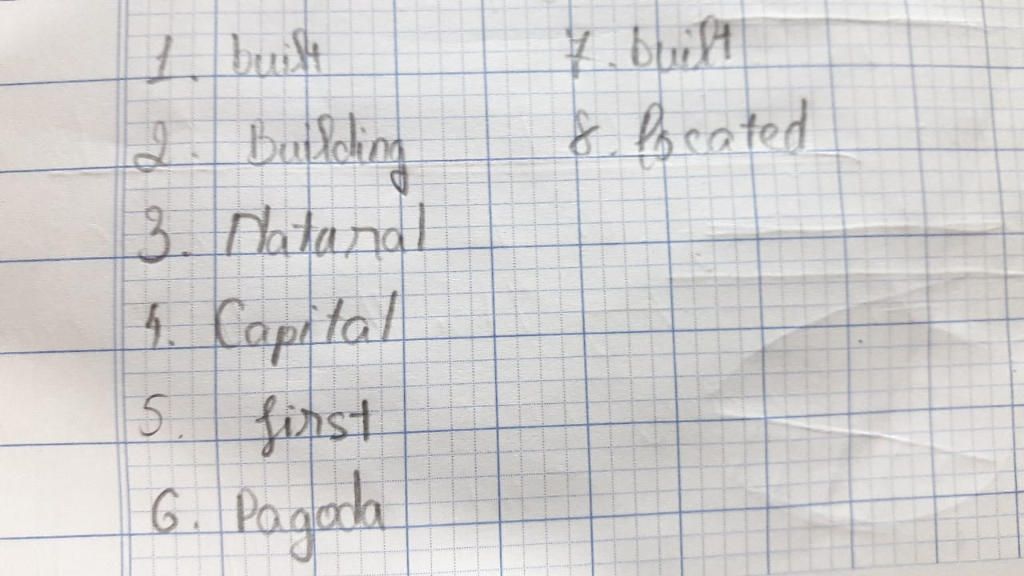 1. built
2. Building
3. Natural
4. Capital
5. first
6. Pagoda
7. built
8. located